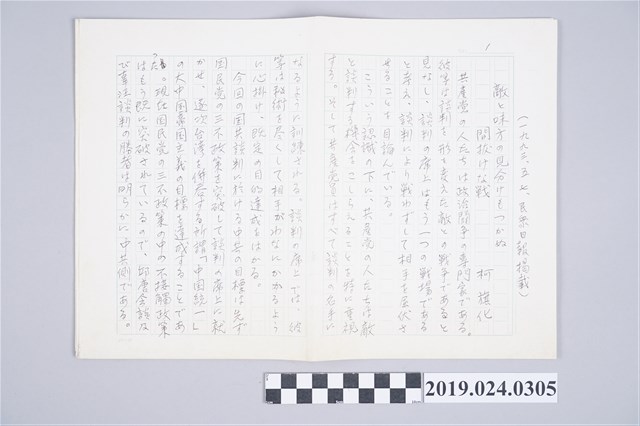 1
(一九九三、五、七、民衆日報掲載)
敵と味方の見分けもつかぬ
間抜けな戦
柯旗化
共産党の人たちは政治闘争の専門家である。
彼等は談判を形を変えた敵との戦争であると
見なし、談判の席上はもう一つの戦場である
と考え、談判により戦わずして相手を屈伏さ
せることを目論んでいる。
こういう認識の下に、共産党の人たちは敵
と談判する機会をこしらえることを特に重視
する。そして共産党員はすべて談判の名手に
なるように訓練される。談判の席上では、彼
等は秘術を尽くして相手がわなにかかるよう
に心掛け、既定の目的達成をはかる。
今回の国共談判に於ける中共の目標は先ず
国民党の三不政策を突破して談判の席上に就
かせ、逐次台湾を併呑する所謂「中国統一」
の大中国帝国主義の目標を達成することであ
った。現在国民党の三不政策の中の不接触政策
はもう既に突破されているので、辜汪会談及
び事法談判の勝者は明らかに中共側である。
2019.024.0305